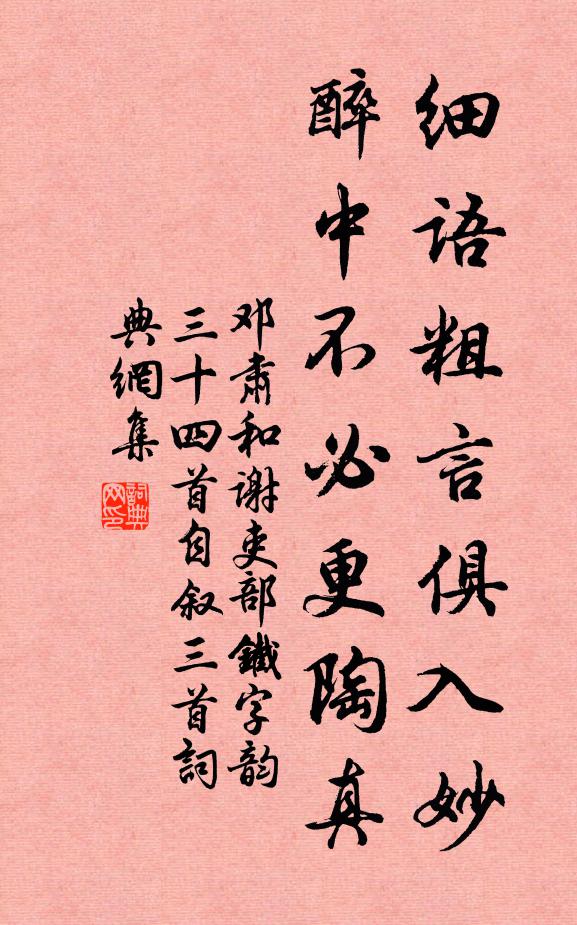 细语粗言俱入妙
醉中不必更陶真
邓肃和谢吏部鐵字韵
三十四首自叙三首詞
典網集
詞典
网印